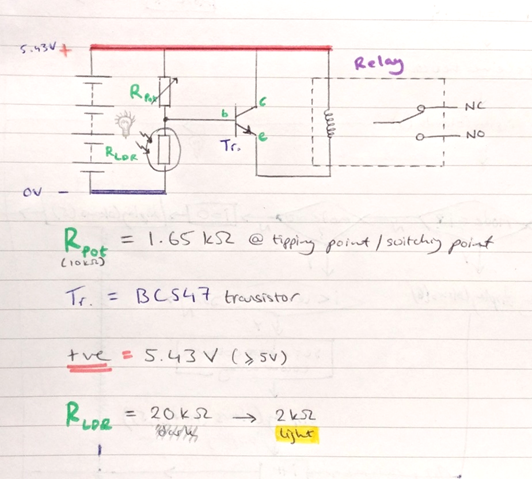 5.43V +
Relay
RPot
b
c
NC
Tr.
e
NO
RLDR
0V -
RPot = 1.65 kΩ @ tipping point/switching point
(10kΩ)
Tr. = BC547 transistor
+ve = 5.43 V (≥5V)
RLDR = 20kΩ → 2kΩ
dark light